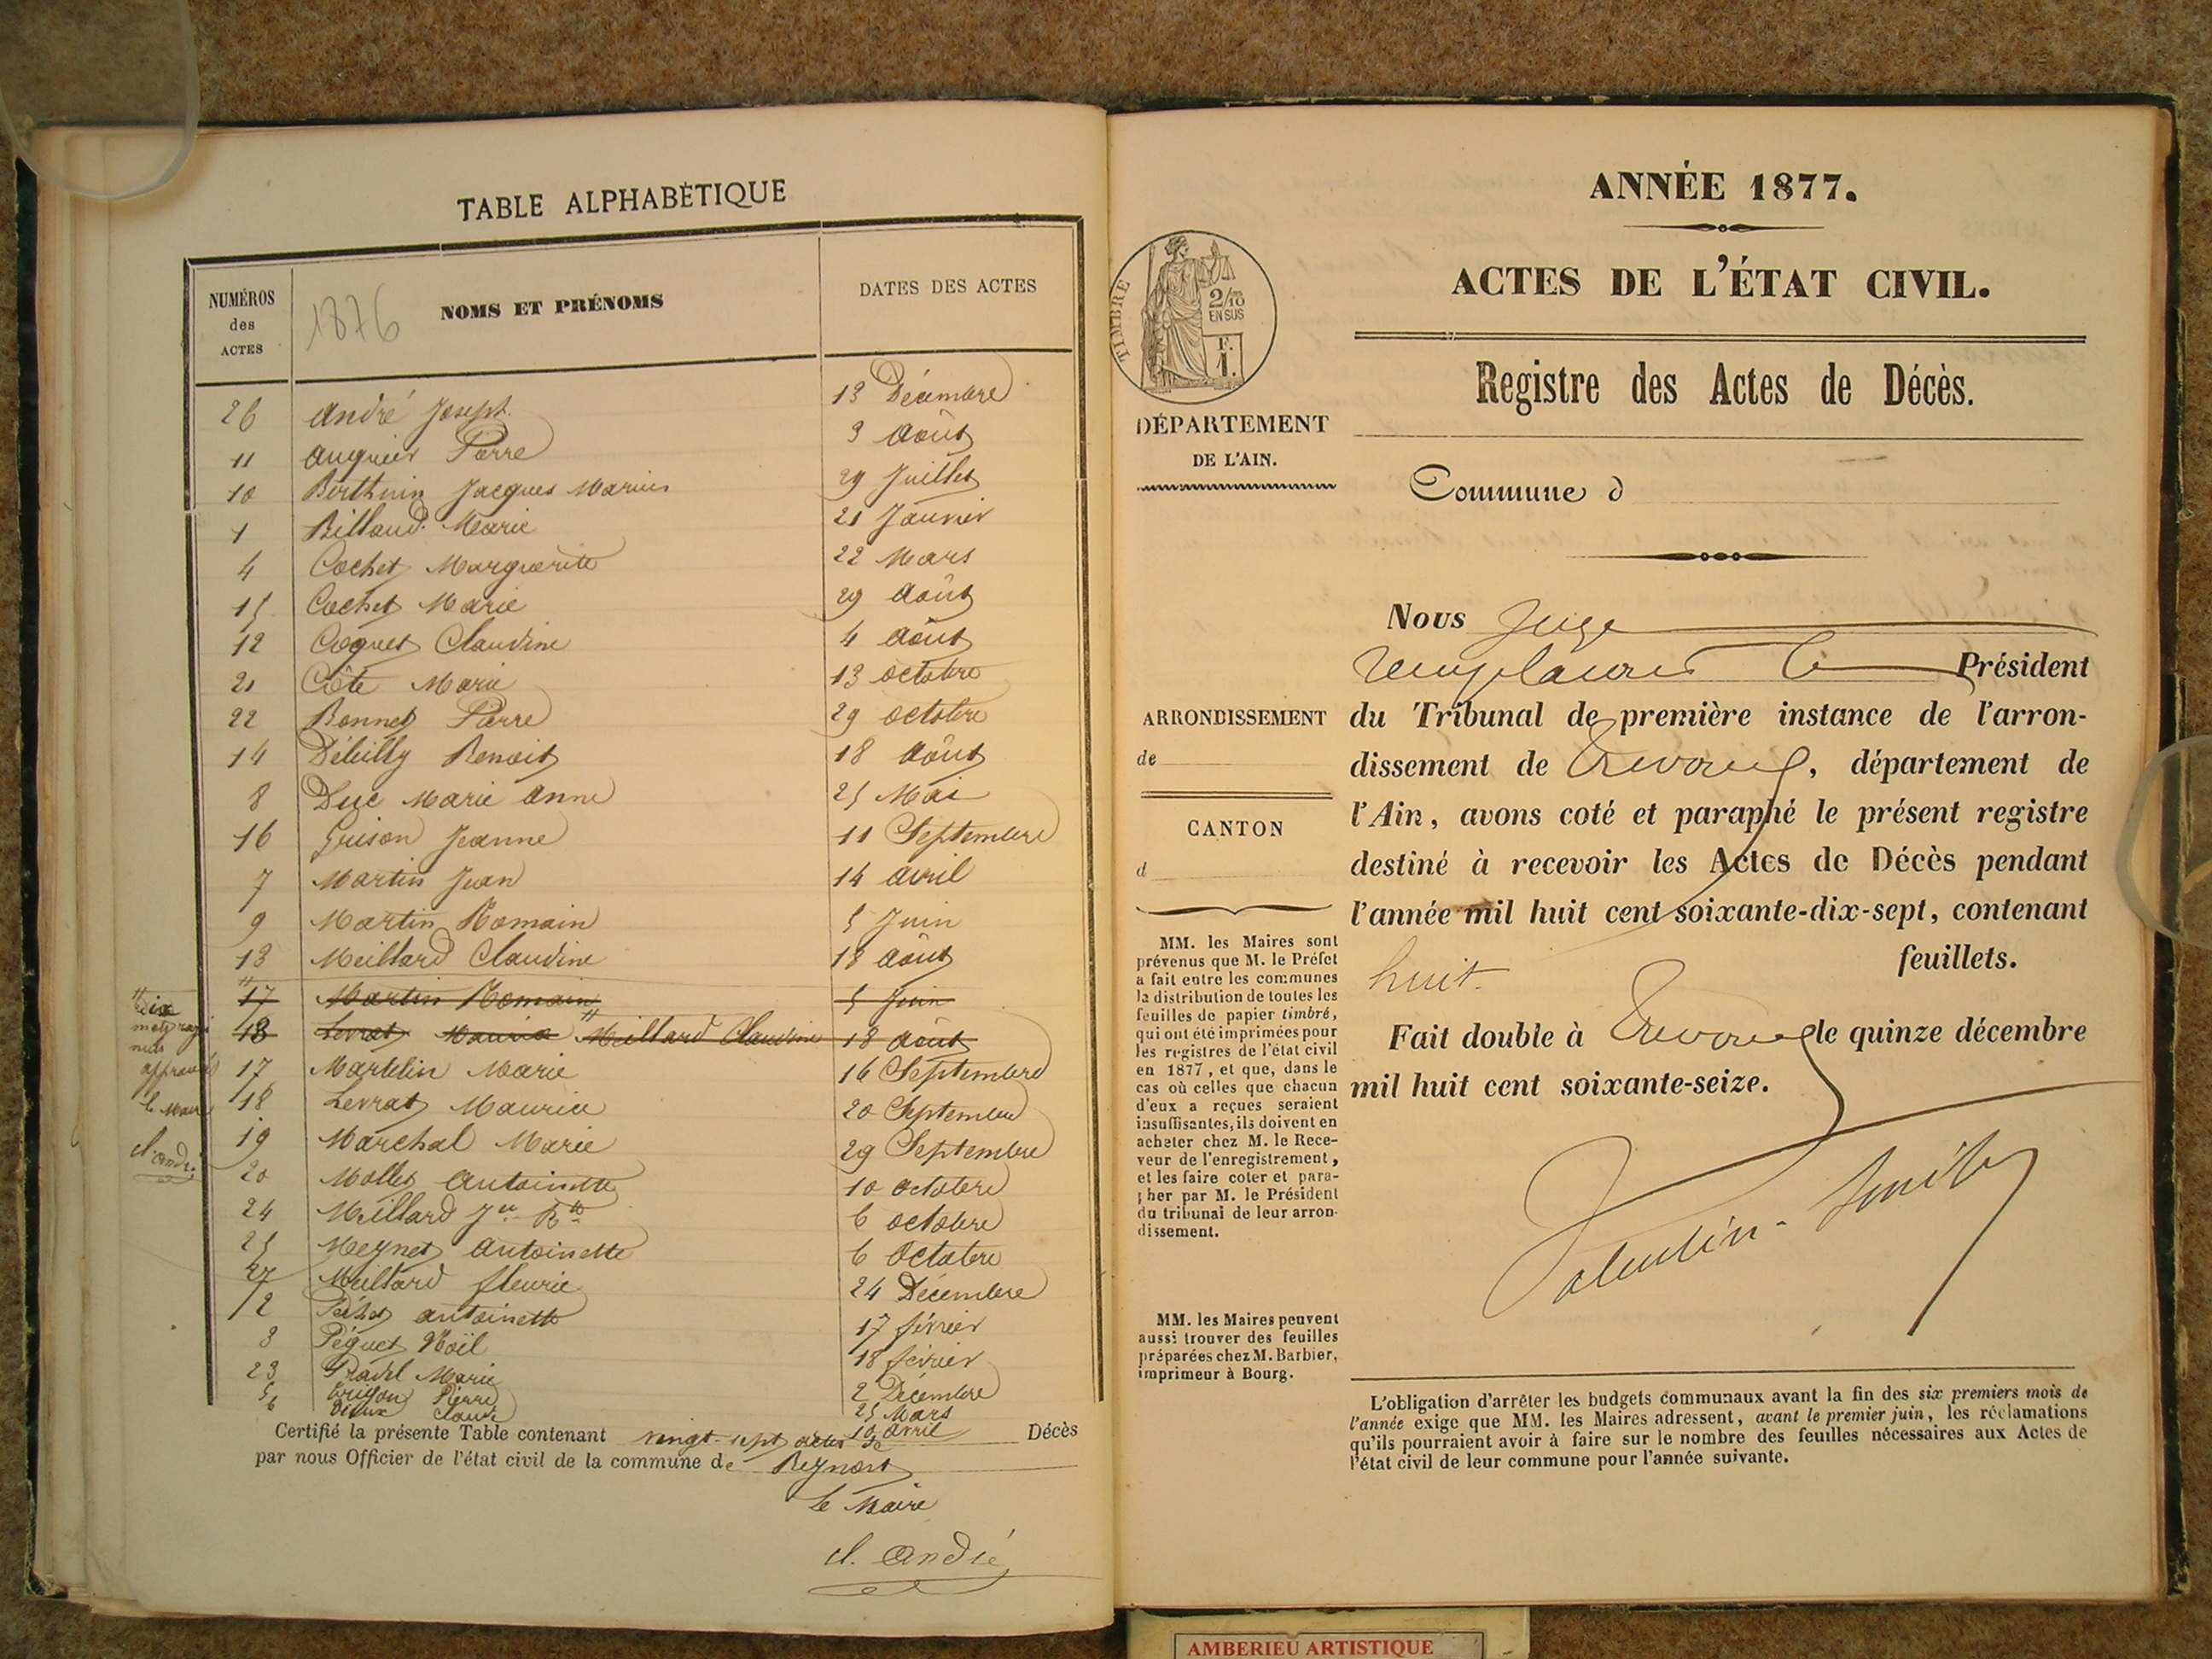 TABLE ALPHABÉTIQUE
NUMÉROS des ACTES
1876 NOMS ET PRÉNOMS
DATES DES ACTES
26 André Joseph 13 Décembre
11 Auguier Pierre 3 Août
10 Berthuin Jacques Marius 29 Juillet
1 Billaud Marie 21 Janvier
4 Cochet Marguerite 22 Mars
15 Cochet Marie 29 Août
12 Coquet Claudine 4 Août
21 Côte Marie 13 octobre
22 Bonnet Pierre 29 octobre
14 Benoit 18 Août
8 Duc Marie Anne 25 Mai
16 Guison Jeanne 11 Septembre
7 Martin Jean 14 avril
9 Martin Romain 5 Juin
13 Meillard Claudine 18 Août
17 Martin Romain 5 Juin
18 Levrat Maurice Meillard Claudine 18 Août
17 Martelin Marie 16 Septembre
18 Levrat Maurice 20 Septembre
19 Marchal Marie 29 Septembre
20 Mollet Antoinette 10 octobre
24 Meillard Jn Bte 6 octobre
25 Meynet Antoinette 6 Octobre
27 Meillard fleurie 24 Décembre
2 antoinette 17 février
3 Péguet Noël 18 février
23 Pradel Marie 2 Décembre
5 Pierre 25 Mars
6 Claude 10 avril
approuvés
le Maire
cl. andré
Certifié la présente Table contenant vingt-sept actes de Décès
par nous Officier de l'état civil de la commune de Reynost
Le Maire
cl. André
ANNÉE 1877.
ACTES DE L'ÉTAT CIVIL.
Registre des Actes de Décès.
Commune d
TIMBRE
2/10 EN SUS
F. 1.
DÉPARTEMENT
DE L'AIN.
ARRONDISSEMENT
de
CANTON
d
MM. les Maires sont
prévenus que M. le Préfet
a fait entre les communes
la distribution de toutes les
feuilles de papier timbré,
qui ont été imprimées pour
les registres de l'état civil
en 1877, et que, dans le
cas où celles que chacun
d'eux a reçues seraient
insuffisantes, ils doivent en
acheter chez M. le Rece-
veur de l'enregistrement,
et les faire coter et para-
pher par M. le Président
du tribunal de leur arron-
dissement.
MM. les Maires peuvent
aussi trouver des feuilles
préparées chez M. Barbier,
imprimeur à Bourg.
Nous Juge
remplaçant le Président
du Tribunal de première instance de l'arron-
dissement de Trévoux, département de
l'Ain, avons coté et paraphé le présent registre
destiné à recevoir les Actes de Décès pendant
l'année mil huit cent soixante-dix-sept, contenant
huit feuillets.
Fait double à Trévoux le quinze décembre
mil huit cent soixante-seize.
Valentin-Smith
L'obligation d'arrêter les budgets communaux avant la fin des six premiers mois de
l'année exige que MM. les Maires adressent, avant le premier juin, les réclamations
qu'ils pourraient avoir à faire sur le nombre des feuilles nécessaires aux Actes de
l'état civil de leur commune pour l'année suivante.
AMBERIEU ARTISTIQUE